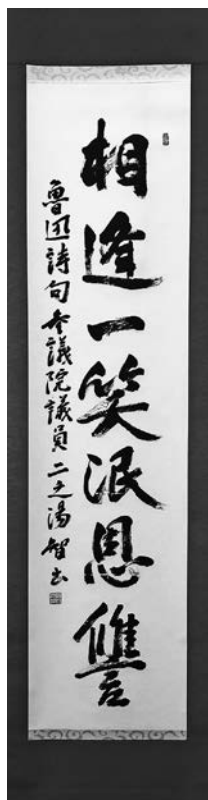 相逢一笑泯恩讐
魯迅詩句参議院議員二之湯智書